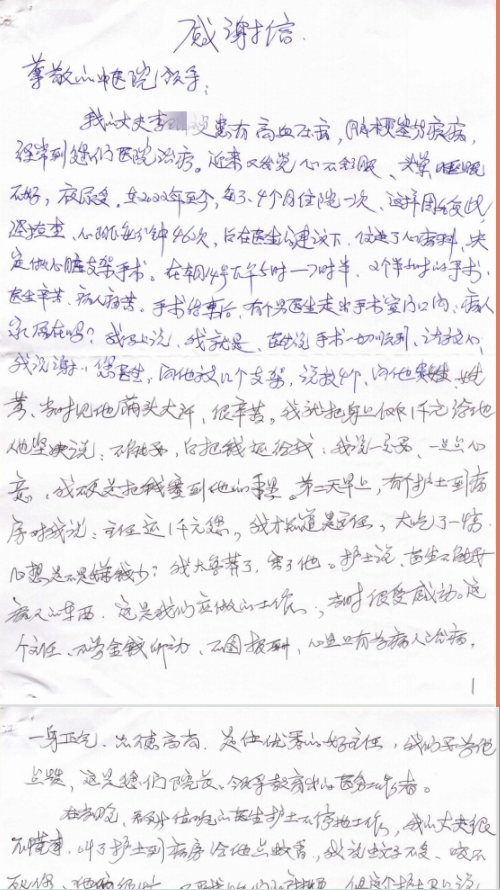 感谢信
尊敬的中医院领导:
我的丈夫李 患有高血压病,脑梗塞等疾病,
经常到您们医院治疗。近来又发觉心不舒服、头晕、睡眠
不好,夜尿多。在2022年至今,每3、4个月住院一次、这样
检查、心跳每分钟46次,后在医生的建议下,住进了心病科,决
定做心脏支架手术。在本月4号下午5时—7时半,2个半小时的手术,
医生辛苦、病人痛苦。手术结束后,有个男医生走出手术室门口问:病人
家属在吗?我马上说,我就是、医生说手术一切顺利,请放心,
我说谢谢您医生,问他放几个支架,说放4个,问他贵姓,姓
黄、当时见他满头大汗,很辛苦,我就把身上仅有1千元给他
他坚决说:不能要,后把钱还给我:我说一定要、一点心
意,我硬是把钱塞到他的 里。第二天早上,有个护士到病
房对我说:主任还1千元您,我才知道是主任,大吃了一惊
心想是不是嫌钱少?我太鲁莽了,害了他。护士说,医生不能
病人的东西,这是我们应做的工作,当时很受感动。这
个主任、不为金钱所动、不图报酬,心里只有为病人治病,
1
一身正气、品德高尚、是位优秀的好主任,我们要为他
点赞,这是您们院长、领导教育出的医务工作者。
在病院,看到十位 的医生护士不停地工作,我的丈夫很
不懂事,叫了护士到病房给他点蚊香,我说蚊子不多、咬不